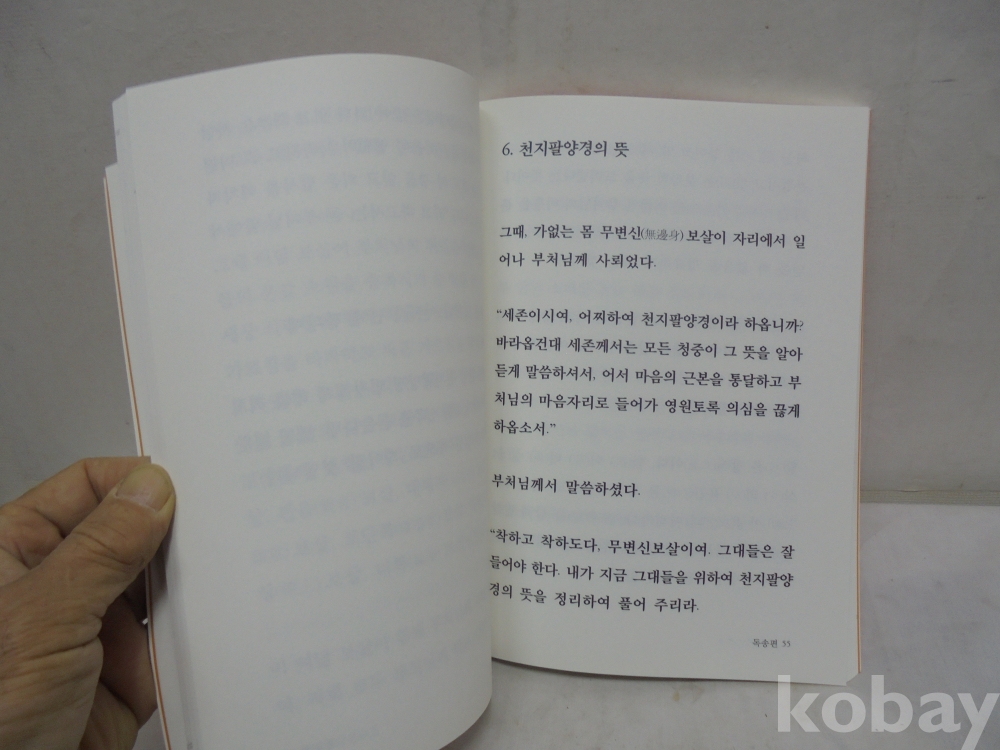 6. 천지팔양경의 뜻
그때, 가없는 몸 무변신(無邊身)보살이 자리에서 일
어나 부처님께 사뢰었다.
“세존이시여, 어찌하여 천지팔양경이라 하옵니까?
바라옵건대 세존께서는 모든 청중이 그 뜻을 알아
듣게 말씀하셔서, 어서 마음의 근본을 통달하고 부
처님의 마음자리로 들어가 영원토록 의심을 끊게
하옵소서.”
부처님께서 말씀하셨다.
“착하고 착하도다, 무변신보살이여. 그대들은 잘
들어야 한다. 내가 지금 그대들을 위하여 천지팔양
경의 뜻을 정리하여 풀어 주리라.
독송편 55
kobay